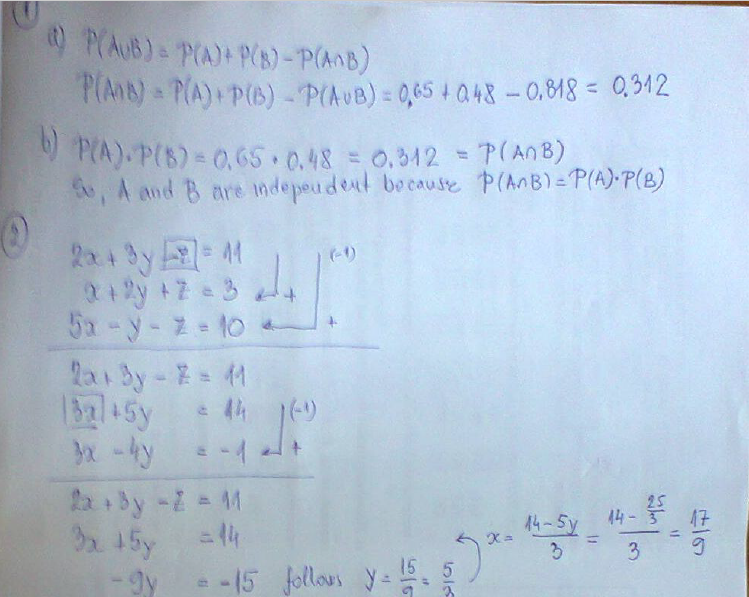 1
a) P(A∪B) = P(A) + P(B) - P(A∩B)
P(A∩B) = P(A) + P(B) - P(A∪B) = 0,65 + 0.48 - 0.818 = 0.312
b) P(A)·P(B) = 0.65 · 0.48 = 0.312 = P(A∩B)
So, A and B are independent because P(A∩B) = P(A)·P(B)
2
2x + 3y -z = 11 (-1)
x + 2y + z = 3 +
5x - y - z = 10 +
2x + 3y - z = 11
3x + 5y = 14 (-1)
3x - 4y = -1 +
2x + 3y - z = 11
3x + 5y = 14
x = (14-5y)/3 = (14 - 25/3)/3 = 17/9
-9y = -15 follows y = 15/9 = 5/3